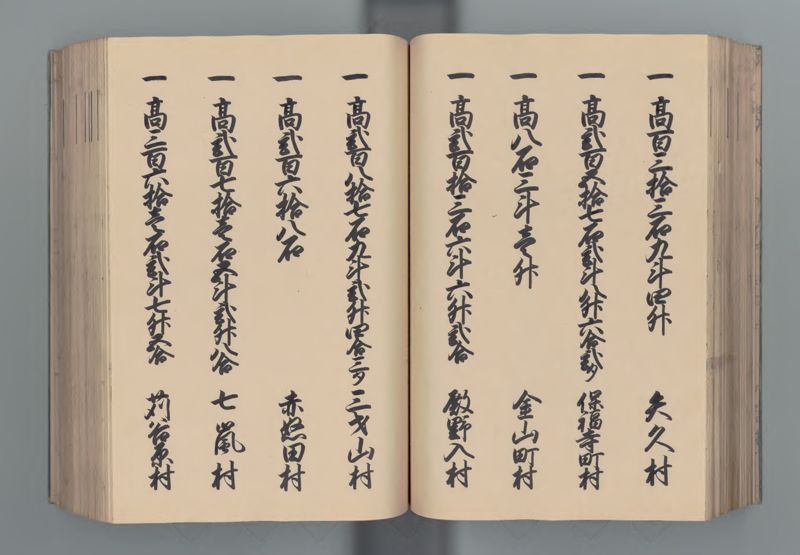 一 高百三拾三石九斗四升 矢久村
一 高弐百五拾七石弐斗八升六合弐夕 保福寺町村
一 高八石三斗壱升 金山町村
一 高弐百拾三石六斗六升弐合 殿野入村
一 高弐百八拾七石九斗弐升四合三夕 三才山村
一 高弐百六拾八石 赤怒田村
一 高弐百七拾壱石五斗弐升八合 七嵐村
一 高三百六拾壱石弐斗七升五合 苅谷原村